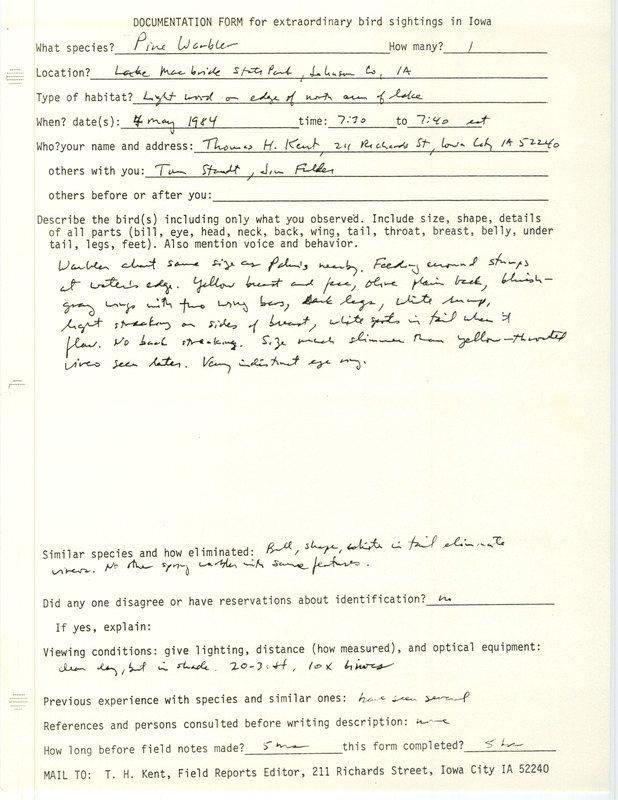 DOCUMENTATION FORM for extraordinary bird sightings in Iowa
What species? Pine Warbler How many? 1
Location? Lake Macbride State Park, Johnson Co, IA
Type of habitat? Light wood on edge of north arm of lake
When? date(s): 4 may 1984 time: 7:30 to 7:40
Who?your name and address: Thomas H. Kent, 211 Richards St, Iowa City IA 52240
others with you: Tom Staudt, Jim Fuller
others before or after you:
Describe the bird(s) including only what you observed. Include size, shape, details
of all parts (bill, eye, head, neck, back, wing, tail, throat, breast, belly, under
tail, legs, feet). Also mention voice and behavior.
Warbler about same size as Palm's nearby. Feeding around stumps
at water's edge. Yellow breast and face, olive plain back, bluish-
gray wings with two wing bars, dark legs, white rump,
light streaking on sides of breast, white spots in tail when it
flew. No back streaking. Size much slimmer than yellow-throated
vireo seen later. Very indistinct eye ring.
Similar species and how eliminated: Bill, shape, white in tail eliminate
vireos. No other spring warbler with same features.
Did any one disagree or have reservations about identification? no
If yes, explain:
Viewing conditions: give lighting, distance (how measured), and optical equipment:
clear day, but in shade. 20-30 ft, 10X binocs
Previous experience with species and similar ones: have seen several
References and persons consulted before writing description: none
How long before field notes made? 5 this form completed? 5 hr
MAIL TO: T. H. Kent, Field Reports Editor, 211 Richards Street, Iowa City IA 52240